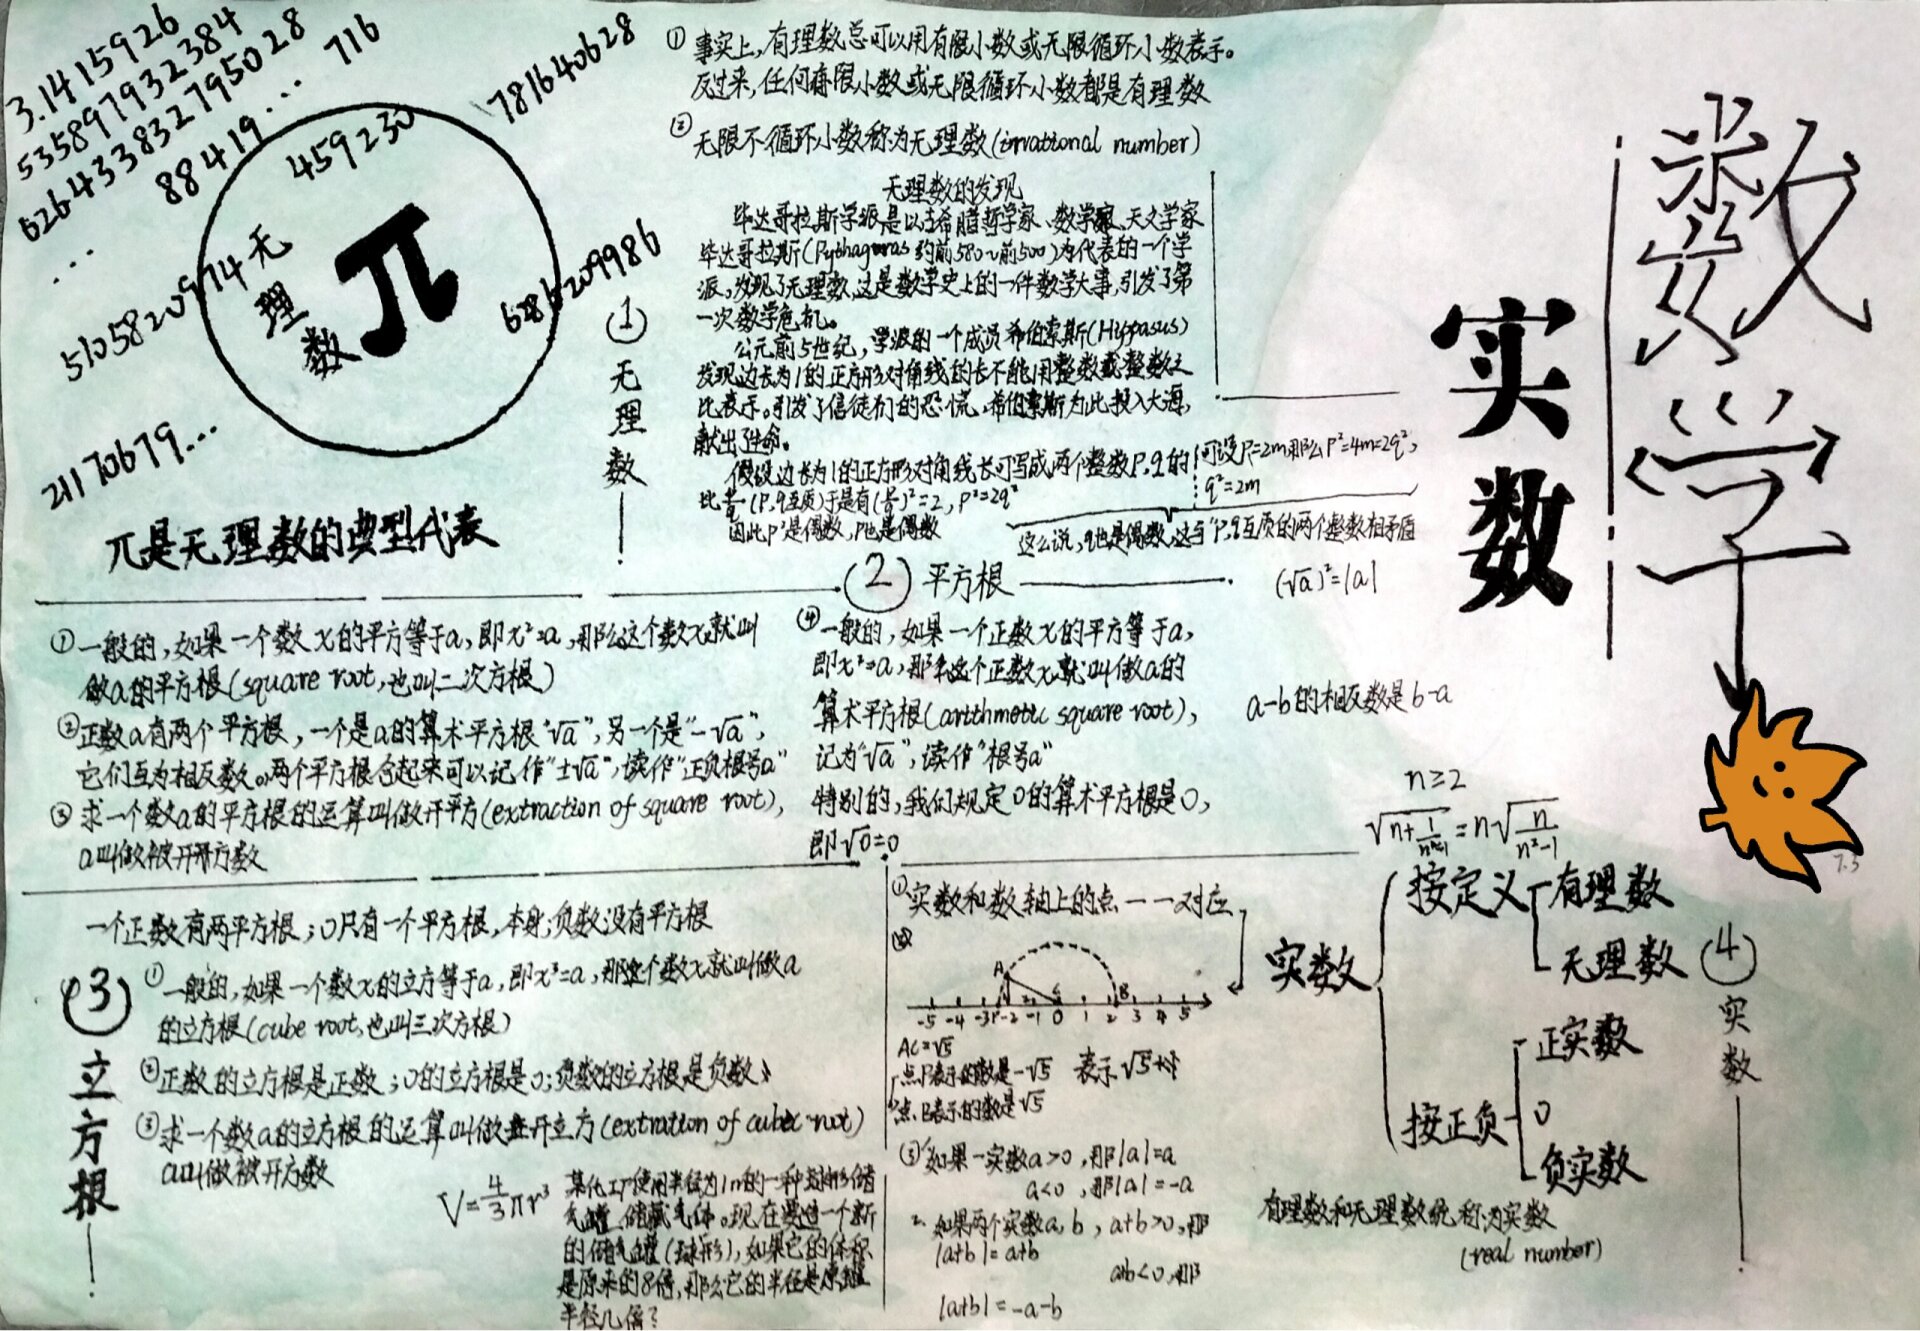 3.1415926
5358979323 84
6264338327950288
88419... 716
...
459230
781640628
51058209749 4 无
理
数
π
6286209986
21170679...
π是无理数的典型代表
①
无
理
数
① 事实上,有理数总可以用有限小数或无限循环小数表示。
反过来,任何有限小数或无限循环小数都是有理数
② 无限不循环小数称为无理数(irrational number)
无理数的发现
毕达哥拉斯学派是以古希腊哲学家、数学家、天文学家
毕达哥拉斯(Pythagoras 约前580~前500)为代表的一个学
派,发现了无理数,这是数学史上的一件数学大事,引发了第
一次数学危机。
公元前5世纪,学派的一个成员希伯索斯(Hippasus)
发现边长为1的正方形对角线的长不能用整数或整数之
比表示。引发了信徒们的恐慌,希伯索斯为此投入大海,
献出了生命。
假设边长为1的正方形对角线长可写成两个整数P,q的
比P/q(P,q互质)于是有(P/q)²=2, P²=2q²
因此P²是偶数,P也是偶数
可设P=2m那么P²=4m=2q²,
q²=2m
这么说,q也是偶数,这与“P,q互质的两个整数相矛盾
实数
数学
② 平方根
(√a)²=|a|
① 一般的,如果一个数x的平方等于a,即x²=a,那么这个数x就叫
做a的平方根(square root,也叫二次方根)
②正数a有两个平方根,一个是a的算术平方根“√a”,另一个是“-√a”,
它们互为相反数。两个平方根合起来可以记作“±√a”,读作“正负根号a”
③ 求一个数a的平方根的运算叫做开平方(extraction of square root),
a叫做被开方数
④一般的,如果一个正数x的平方等于a,
即x²=a,那么这个正数x就叫做a的
算术平方根(artthmetic square root),
记为“√a”,读作“根号a”
特别的,我们规定0的算术平方根是0,
即√0=0
a-b的相反数是b-a
n≥2
√n+1/n²-1=n√n/n²-1
7.3
一个正数有两平方根;0只有一个平方根,本身;负数没有平方根
③
立
方
根
① 一般的,如果一个数x的立方等于a,即x³=a,那这个数x就叫做a
的立方根(cube root,也叫三次方根)
②正数的立方根是正数;0的立方根是0;负数的立方根是负数
③ 求一个数a的立方根的运算叫做开立方(extration of cubic root)
a叫做被开方数
V=4/3πr³
某化工厂使用半径为1m的一种球形储
气罐储藏气体。现在要造一个新
的储气罐(球形),如果它的体积
是原来的8倍,那么它的半径是原罐
半径几倍?
①实数和数轴上的点一一对应
②
A
P C B
-5 -4 -3 -2 -1 0 1 2 3 4 5
AC=√5
点P表示的数是-√5 表示√5
点B表示的数是√5
③如果一实数a>0,那|a|=a
a<0,那|a|=-a
2. 如果两个实数a,b, a+b>0,那
|a+b|=a+b
a+b<0,那
|a+b|=-a-b
实数
按定义
有理数
无理数
按正负
正实数
0
负实数
④
实
数
有理数和无理数统称为实数
(real number)